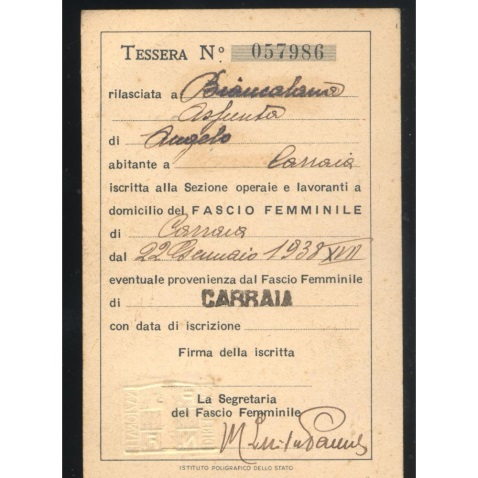 TESSERA N° 057986
rilasciata a Biancalana
Assunta
di Angelo
abitante a Carraia
iscritta alla Sezione operaie e lavoranti a
domicilio del FASCIO FEMMINILE
di Carraia
dal 22 Gennaio 1938 XVI
eventuale provenienza dal Fascio Femminile
di CARRAIA
con data di iscrizione
Firma della iscritta
La Segretaria
del Fascio Femminile
ISTITUTO POLIGRAFICO DELLO STATO